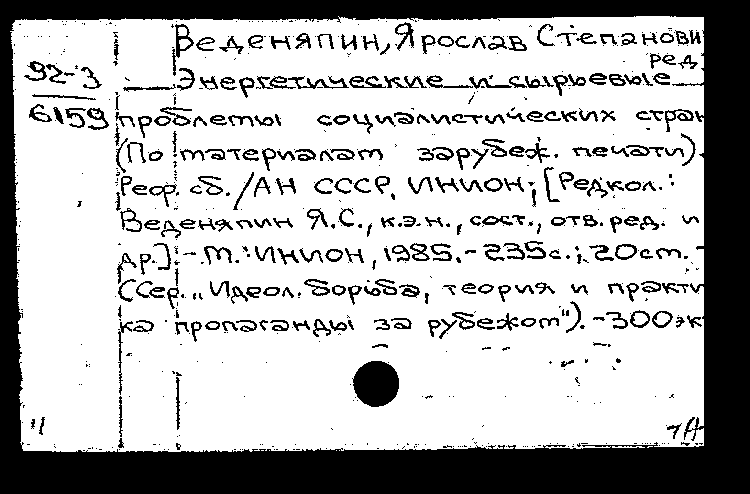 Веденяпин, Ярослав Степанови
ред.
92-3
Энергетические и сырьевые
6159
проблемы социалистических стран
(По материалам зарубеж. печати).
Реф. сб. / АН СССР, ИНИОН; [Редкол.:
Веденяпин Я.С., к.э.н., сост., отв. ред. и
др.]. - М.: ИНИОН, 1985. - 235 с.; 20 см. -
(Сер. „Идеол. борьба, теория и практи
ка пропаганды за рубежом"). - 300 эк